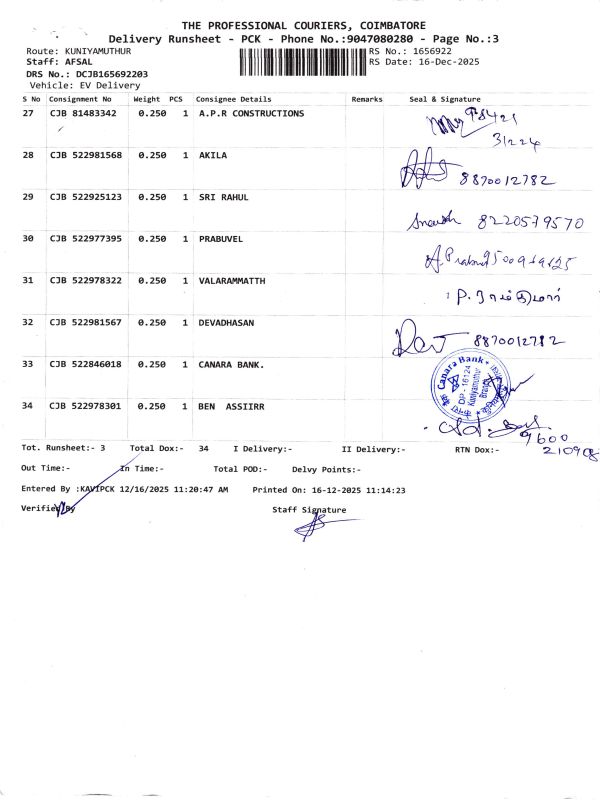 THE PROFESSIONAL COURIERS, COIMBATORE
Delivery Runsheet - PCK - Phone No.:9047080280 - Page No.:3
Route: KUNIYAMUTHUR RS No.: 1656922
Staff: AFSAL RS Date: 16-Dec-2025
DRS No.: DCJB165692203
Vehicle: EV Delivery
S No Consignment No Weight PCS Consignee Details Remarks Seal & Signature
27 CJB 81483342 0.250 1 A.P.R CONSTRUCTIONS
31224
28 CJB 522981568 0.250 1 AKILA
8870012782
29 CJB 522925123 0.250 1 SRI RAHUL
8220579570
30 CJB 522977395 0.250 1 PRABUVEL
A. Prabu
31 CJB 522978322 0.250 1 VALARAMMATTH
32 CJB 522981567 0.250 1 DEVADHASAN
Dev 8870012782
33 CJB 522846018 0.250 1 CANARA BANK.
Canara Bank
DP - 16124
Kuniyamuthur
Branch
34 CJB 522978301 0.250 1 BEN ASSIIRR
9600
210908
Tot. Runsheet:- 3 Total Dox:- 34 I Delivery:- II Delivery:- RTN Dox:-
Out Time:- In Time:- Total POD:- Delvy Points:-
Entered By :KAVIPCK 12/16/2025 11:20:47 AM Printed On: 16-12-2025 11:14:23
Verified By Staff Signature